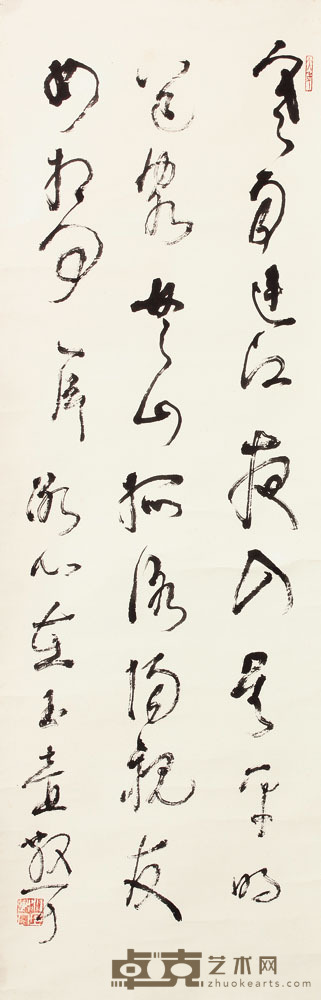 寒雨连江夜入吴平明
送客楚山孤洛阳亲友
如相问一片冰心在玉壶 散可
卓克艺术网
www.zhuokearts.com